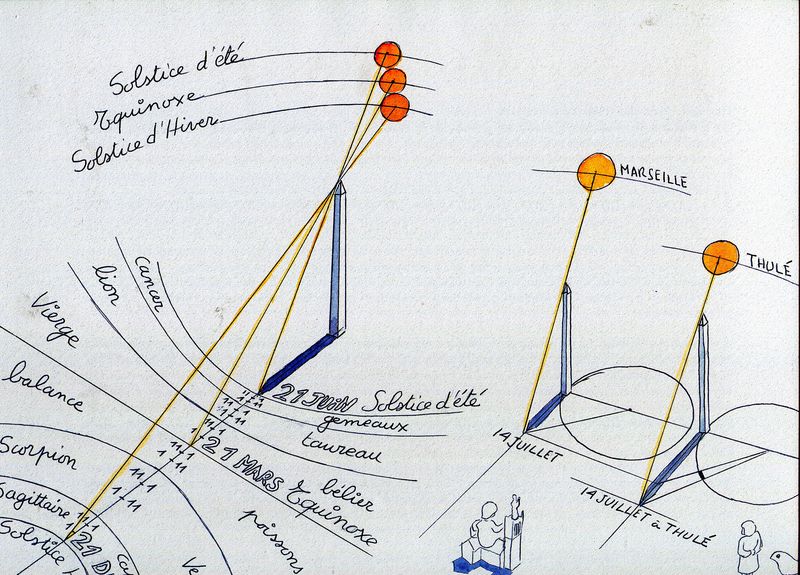 Solstice d'été
Equinoxe
Solstice d'Hiver
MARSEILLE
THULÉ
cancer
lion
Vierge
balance
Scorpion
Sagittaire
Solstice
21 JUIN Solstice d'été
gemeaux
taureau
21 MARS Equinoxe
bélier
poissons
14 JUILLET
14 JUILLET à THULÉ